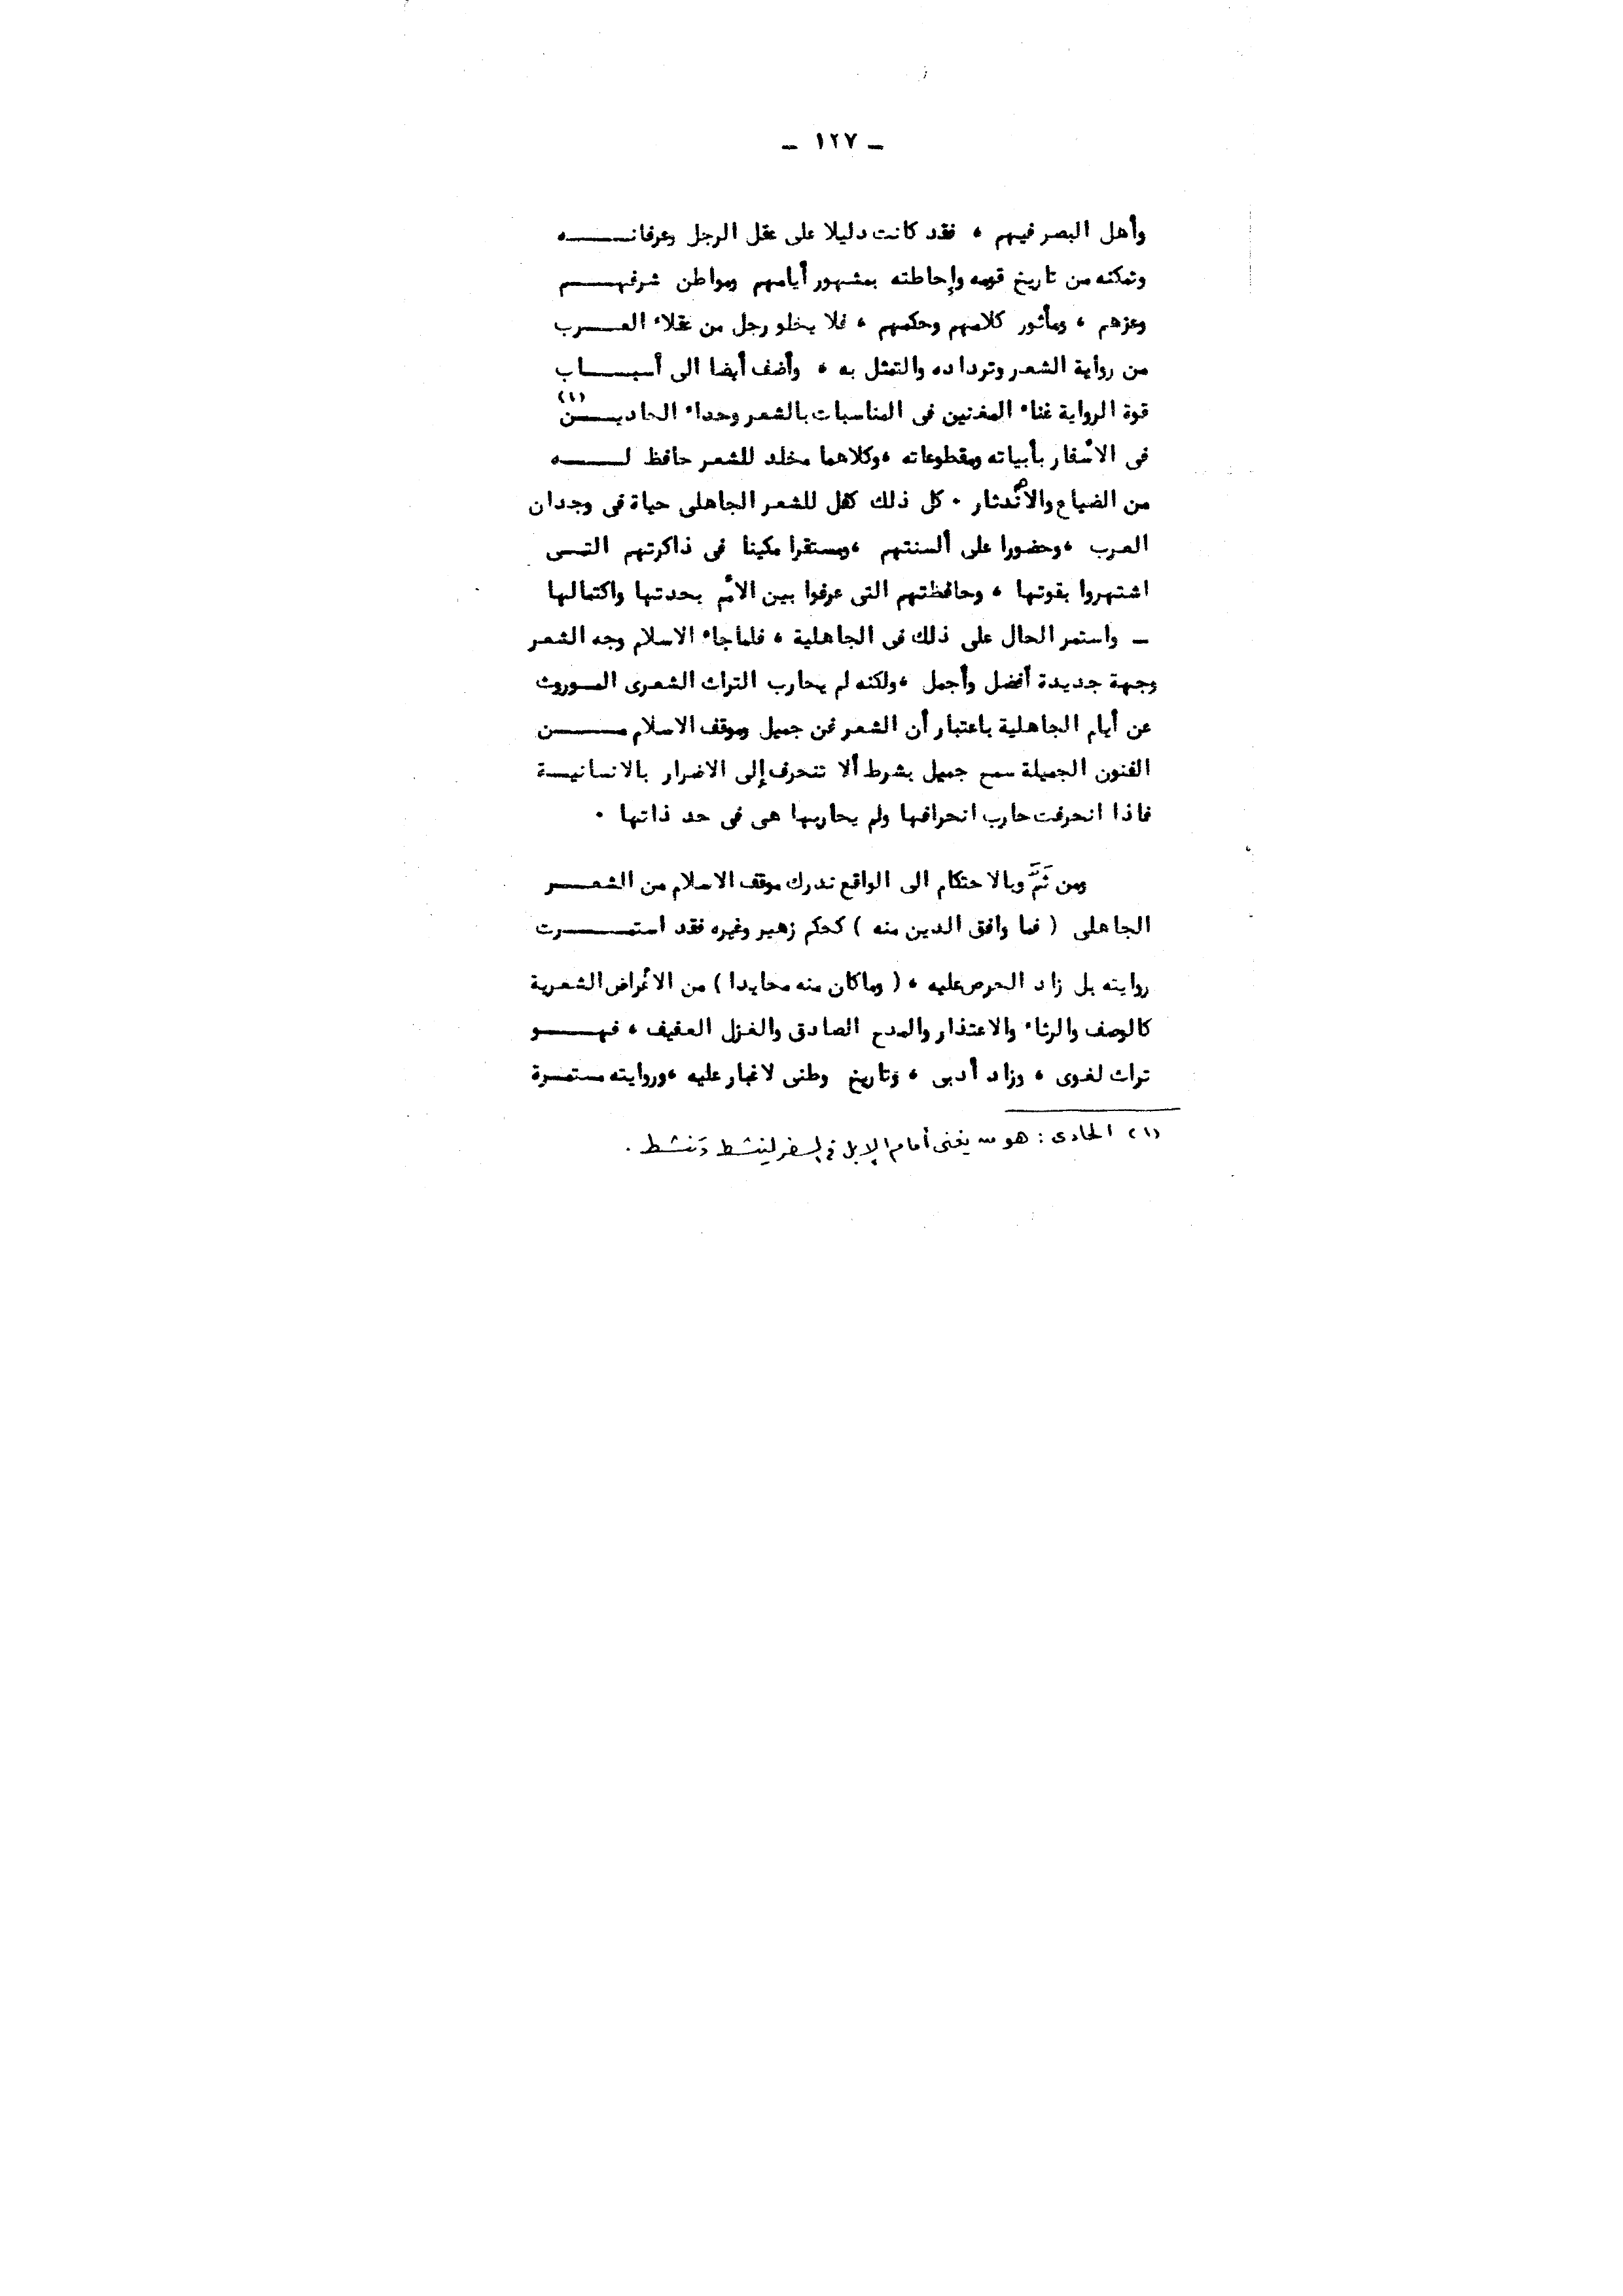 ـ ١٢٧ ـ
وأهل البصر فيهم ، فقد كانت دليلا على عقل الرجل وعرفانــــه
وتمكنه من تاريخ قومه وإحاطته بمشهور أيامهم ومواطن شرفهــــم
وعزهم ، ومأثور كلامهم وحكمهم ، فلا يخلو رجل من عقلاء العــــرب
من رواية الشعر وترداده والتمثل به ، وأضف أيضا الى أسبــــاب
قوة الرواية غناء المغنين فى المناسبات بالشعر وحداء الحاديــــن (١)
فى الأسفار بأبياته ومقطوعاته ،وكلاهما مخلد للشعر حافظ لــــه
من الضياع والأندثار ٠ كل ذلك كفل للشعر الجاهلى حياة فى وجدان
العرب ،وحضورا على ألسنتهم ،ومستقرا مكينا فى ذاكرتهم التــى
اشتهروا بقوتها ، وحافظتهم التى عرفوا بين الأمم بحدتها واكتمالها
ـ واستمر الحال على ذلك فى الجاهلية ، فلما جاء الاسلام وجه الشعر
وجهة جديدة أفضل وأجمل ،ولكنه لم يحارب التراث الشعرى المــوروث
عن أيام الجاهلية باعتبار أن الشعر فن جميل وموقف الاسلام مــــن
الفنون الجميلة سمح جميل بشرط ألا تنحرف إلى الاضرار بالانسانيــة
فاذا انحرفت حارب انحرافها ولم يحاربها هى فى حد ذاتها ٠
ومن ثَمَّ وبالاحتكام الى الواقع ندرك موقف الاسلام من الشعــــر
الجاهلى ( فما وافق الدين منه ) كحكم زهير وغيره فقد استمــــرت
روايته بل زاد الحرص عليه ، ( وماكان منه محايدا ) من الأغراض الشعرية
كالوصف والرثاء والاعتذار والمدح الصادق والغزل العفيف ، فهــــو
تراث لغوى ، وزاد أدبى ، وتاريخ وطنى لاغبار عليه ،وروايته مستمــرة
(١) الحادى : هو من يغنى أمام الإبل فى السفر لينشط وتنشط .